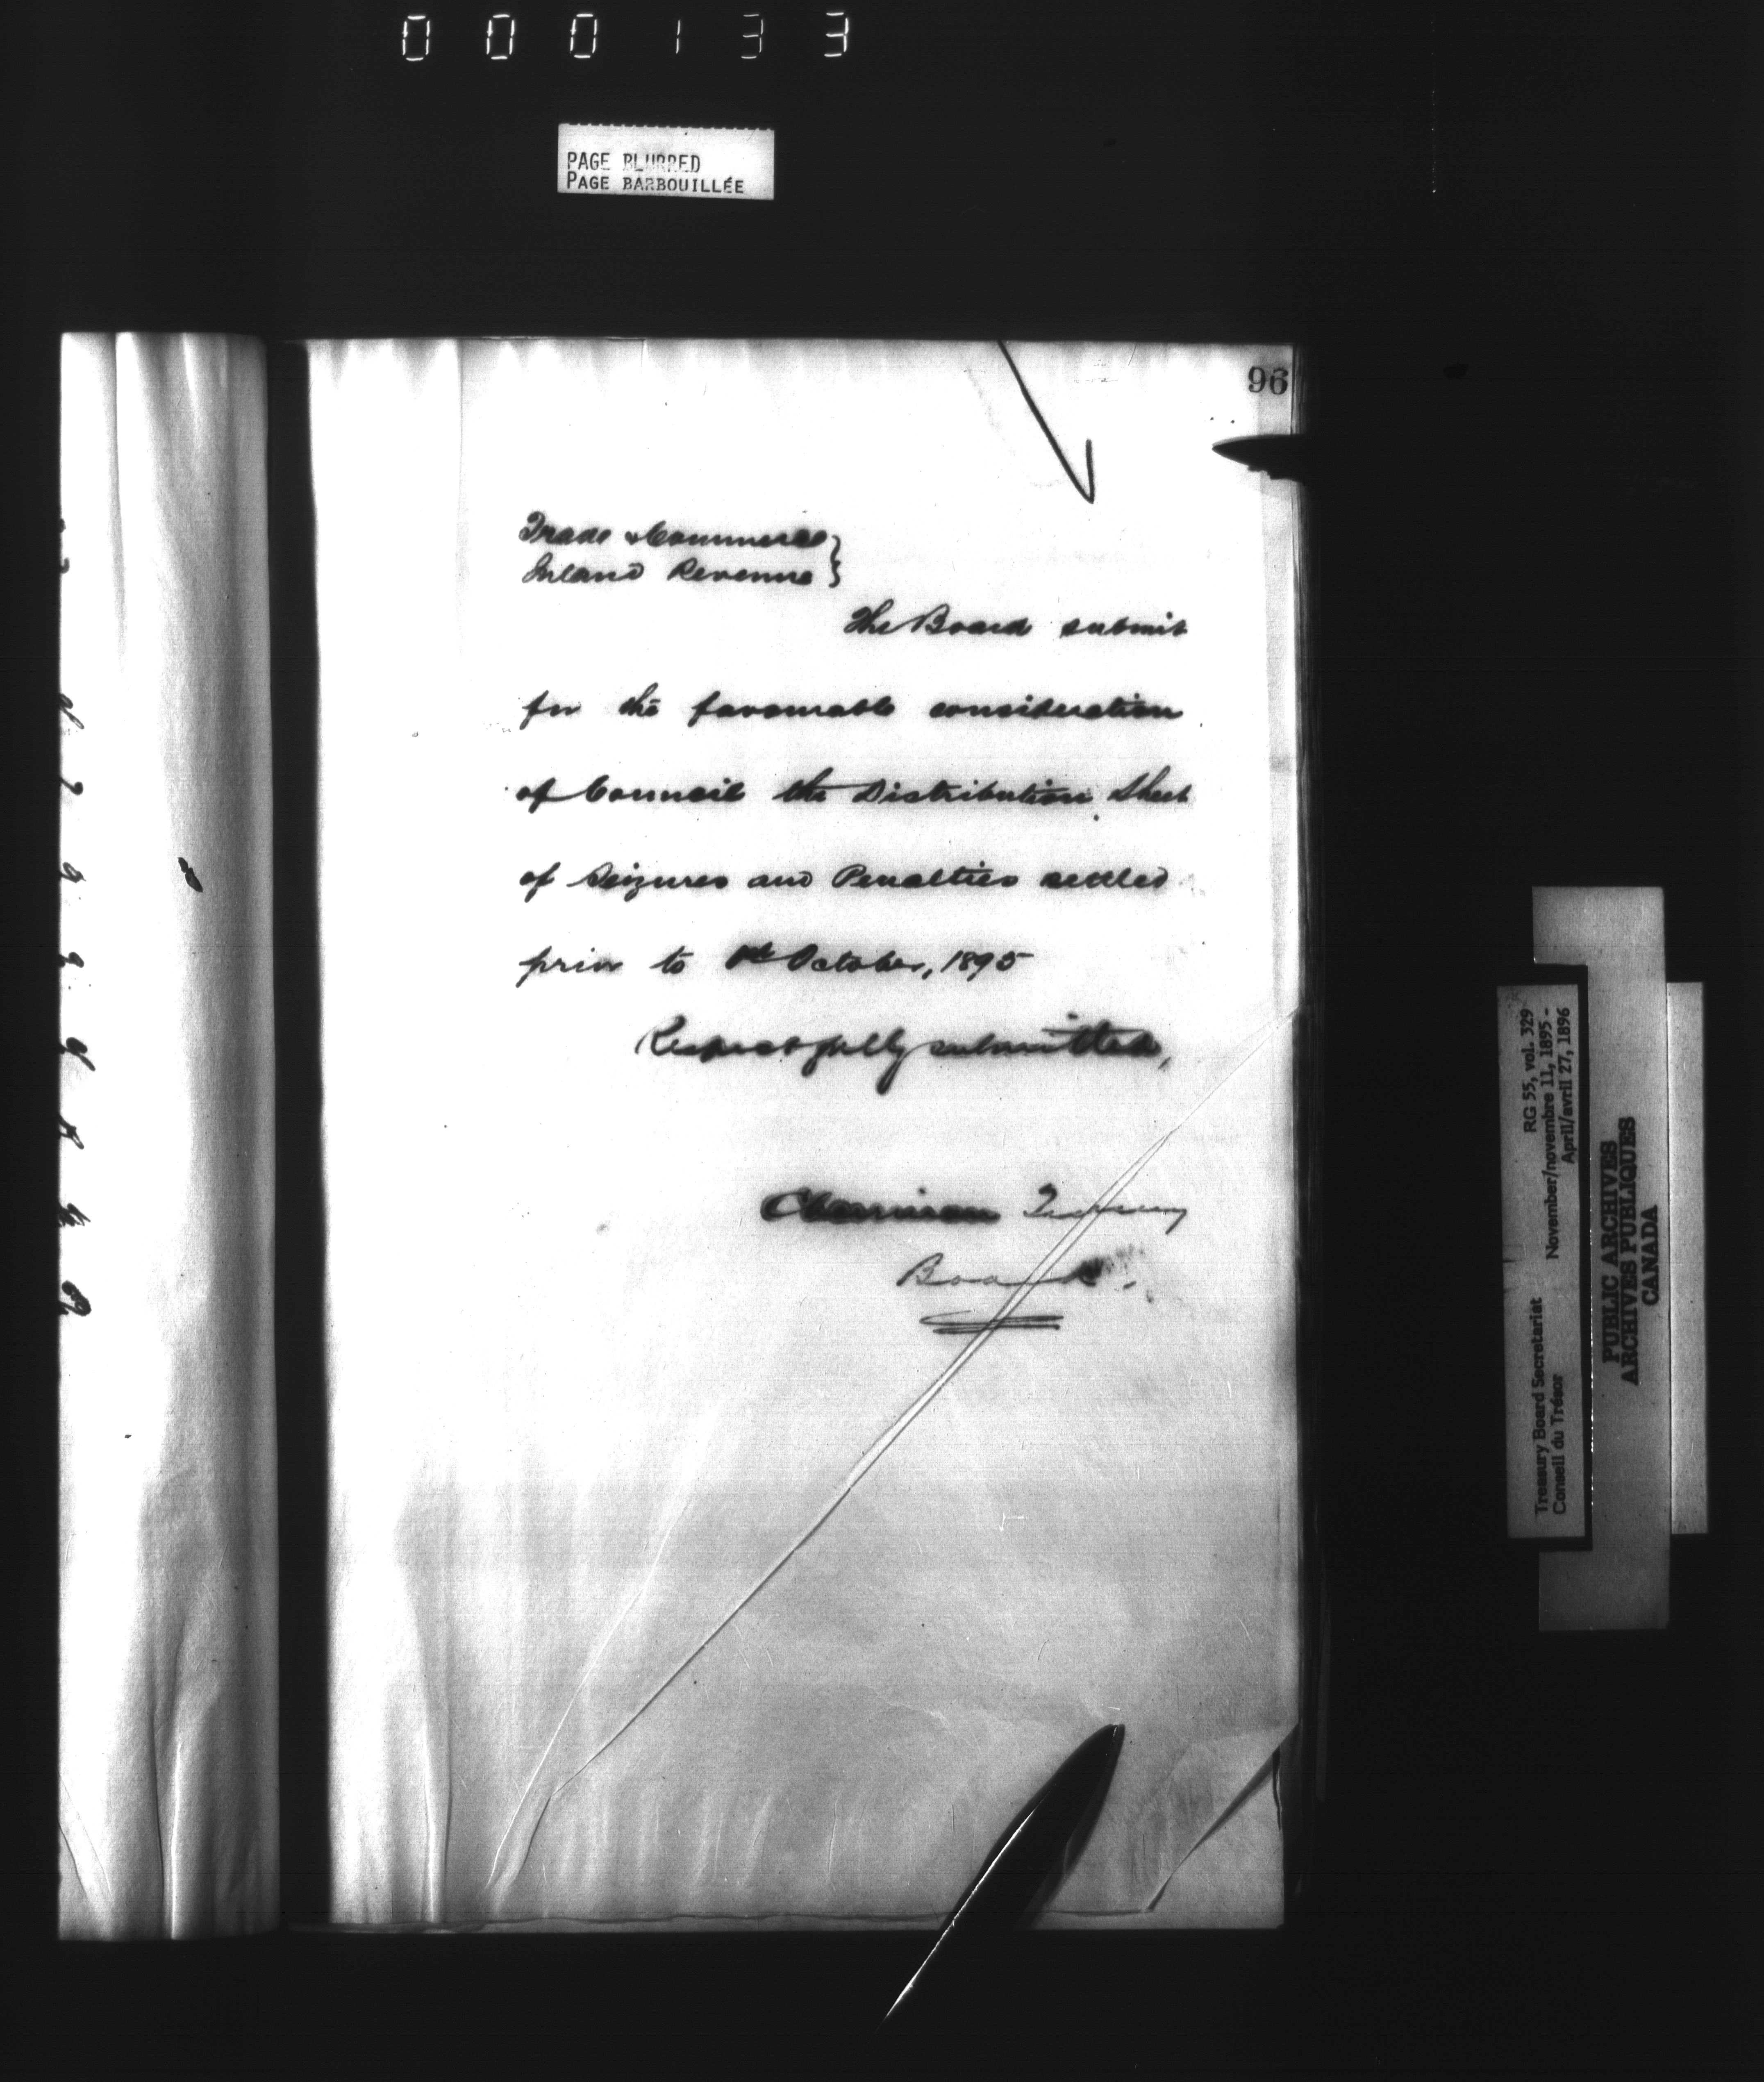 000133
PAGE BLURRED
PAGE BARBOUILLÉE
96
Trade & Commerce }
Inland Revenue }
The Board submit
for the favourable consideration
of Council the Distribution Sheet
of Seizures and Penalties settled
prior to 1st October, 1895
Respectfully submitted,
Chairman Treasury
Board.
Treasury Board Secretariat RG 55, vol. 329
Conseil du Trésor November/novembre 11, 1895 -
April/avril 27, 1896
PUBLIC ARCHIVES
ARCHIVES PUBLIQUES
CANADA